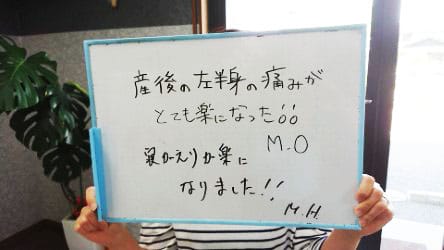 産後の左半身の痛みが
とても楽になった!!
M.O
寝がえりが楽に
なりました!!
M.H.